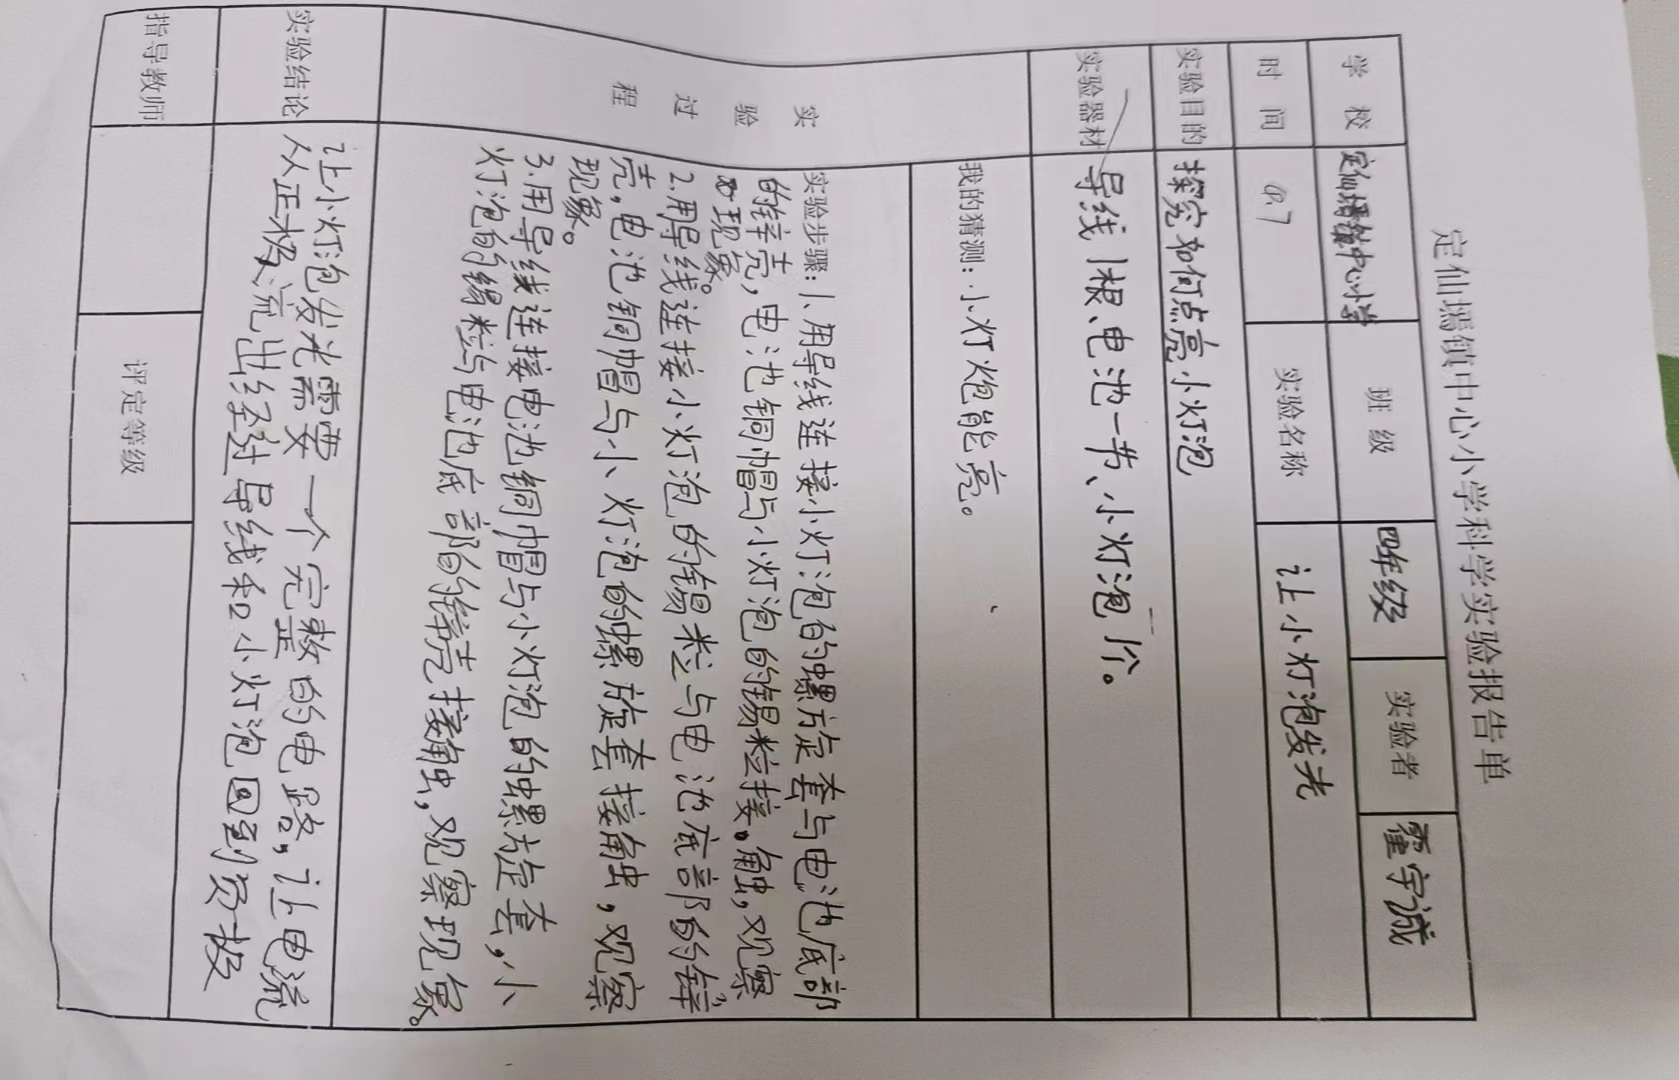 定仙墕镇中心小学科学实验报告单
学 校 定仙墕镇中心小学 班 级 四年级 实验者 霍宇诚
时 间 实验名称 让小灯泡发光
实验目的 探究如何点亮小灯泡
实验器材 导线1根、电池一节、小灯泡1个。
实验过程
我的猜测：小灯炮能亮。
实验步骤：1、用导线连接小灯泡的螺旋套与电池底部
的锌壳，电池铜帽与小灯泡的锡粒接触，观察
现象。
2.用导线连接小灯泡的锡粒与电池底部的锌
壳，电池铜帽与小灯泡的螺旋套接触，观察
现象。
3.用导线连接电池铜帽与小灯泡的螺旋套，小
灯泡的锡粒与电池底部的锌壳接触，观察现象。
实验结论 让小灯泡发光需要一个完整的电路，让电流
从正极流出经过导线和小灯泡回到负极
指导教师 评定等级